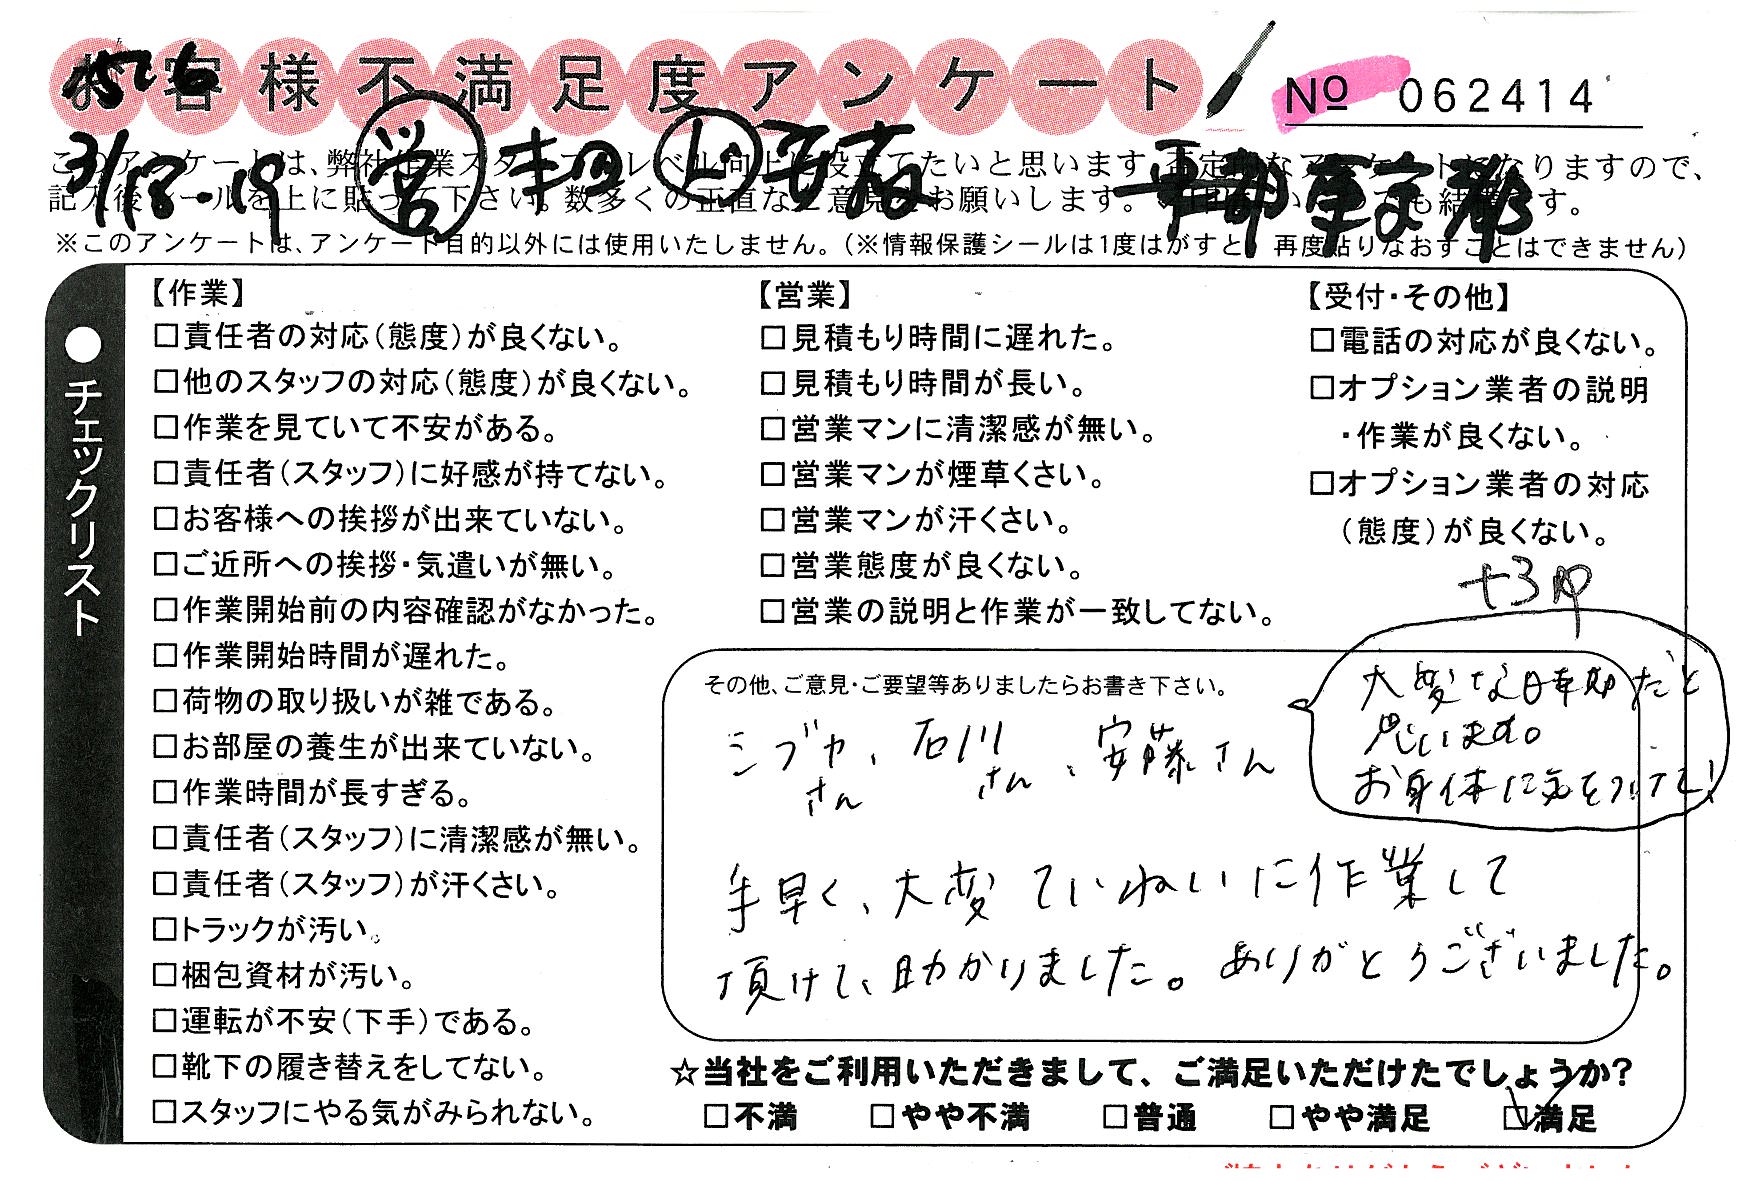 お客様不満足度アンケート
№ 062414
3/18・19 営
このアンケートは、弊社作業スタッフのレベル向上に役立てたいと思います。否定的なアンケートになりますので、
記入後シールを上に貼って下さい。数多くの正直なご意見をお願いします。 も結構です。
※このアンケートは、アンケート目的以外には使用いたしません。（※情報保護シールは1度はがすと、再度貼りなおすことはできません）
●チェックリスト
【作業】
□責任者の対応（態度）が良くない。
□他のスタッフの対応（態度）が良くない。
□作業を見ていて不安がある。
□責任者（スタッフ）に好感が持てない。
□お客様への挨拶が出来ていない。
□ご近所への挨拶・気遣いが無い。
□作業開始前の内容確認がなかった。
□作業開始時間が遅れた。
□荷物の取り扱いが雑である。
□お部屋の養生が出来ていない。
□作業時間が長すぎる。
□責任者（スタッフ）に清潔感が無い。
□責任者（スタッフ）が汗くさい。
□トラックが汚い。
□梱包資材が汚い。
□運転が不安（下手）である。
□靴下の履き替えをしてない。
□スタッフにやる気がみられない。
【営業】
□見積もり時間に遅れた。
□見積もり時間が長い。
□営業マンに清潔感が無い。
□営業マンが煙草くさい。
□営業マンが汗くさい。
□営業態度が良くない。
□営業の説明と作業が一致してない。
【受付・その他】
□電話の対応が良くない。
□オプション業者の説明
・作業が良くない。
□オプション業者の対応
（態度）が良くない。
その他、ご意見・ご要望等ありましたらお書き下さい。
シブヤさん、石川さん、安藤さん
大変な時期だと
思います。
お身体に気をつけて！
手早く、大変ていねいに作業して
頂けて、助かりました。ありがとうございました。
☆当社をご利用いただきまして、ご満足いただけたでしょうか?
□不満 □やや不満 □普通 □やや満足 ☑満足